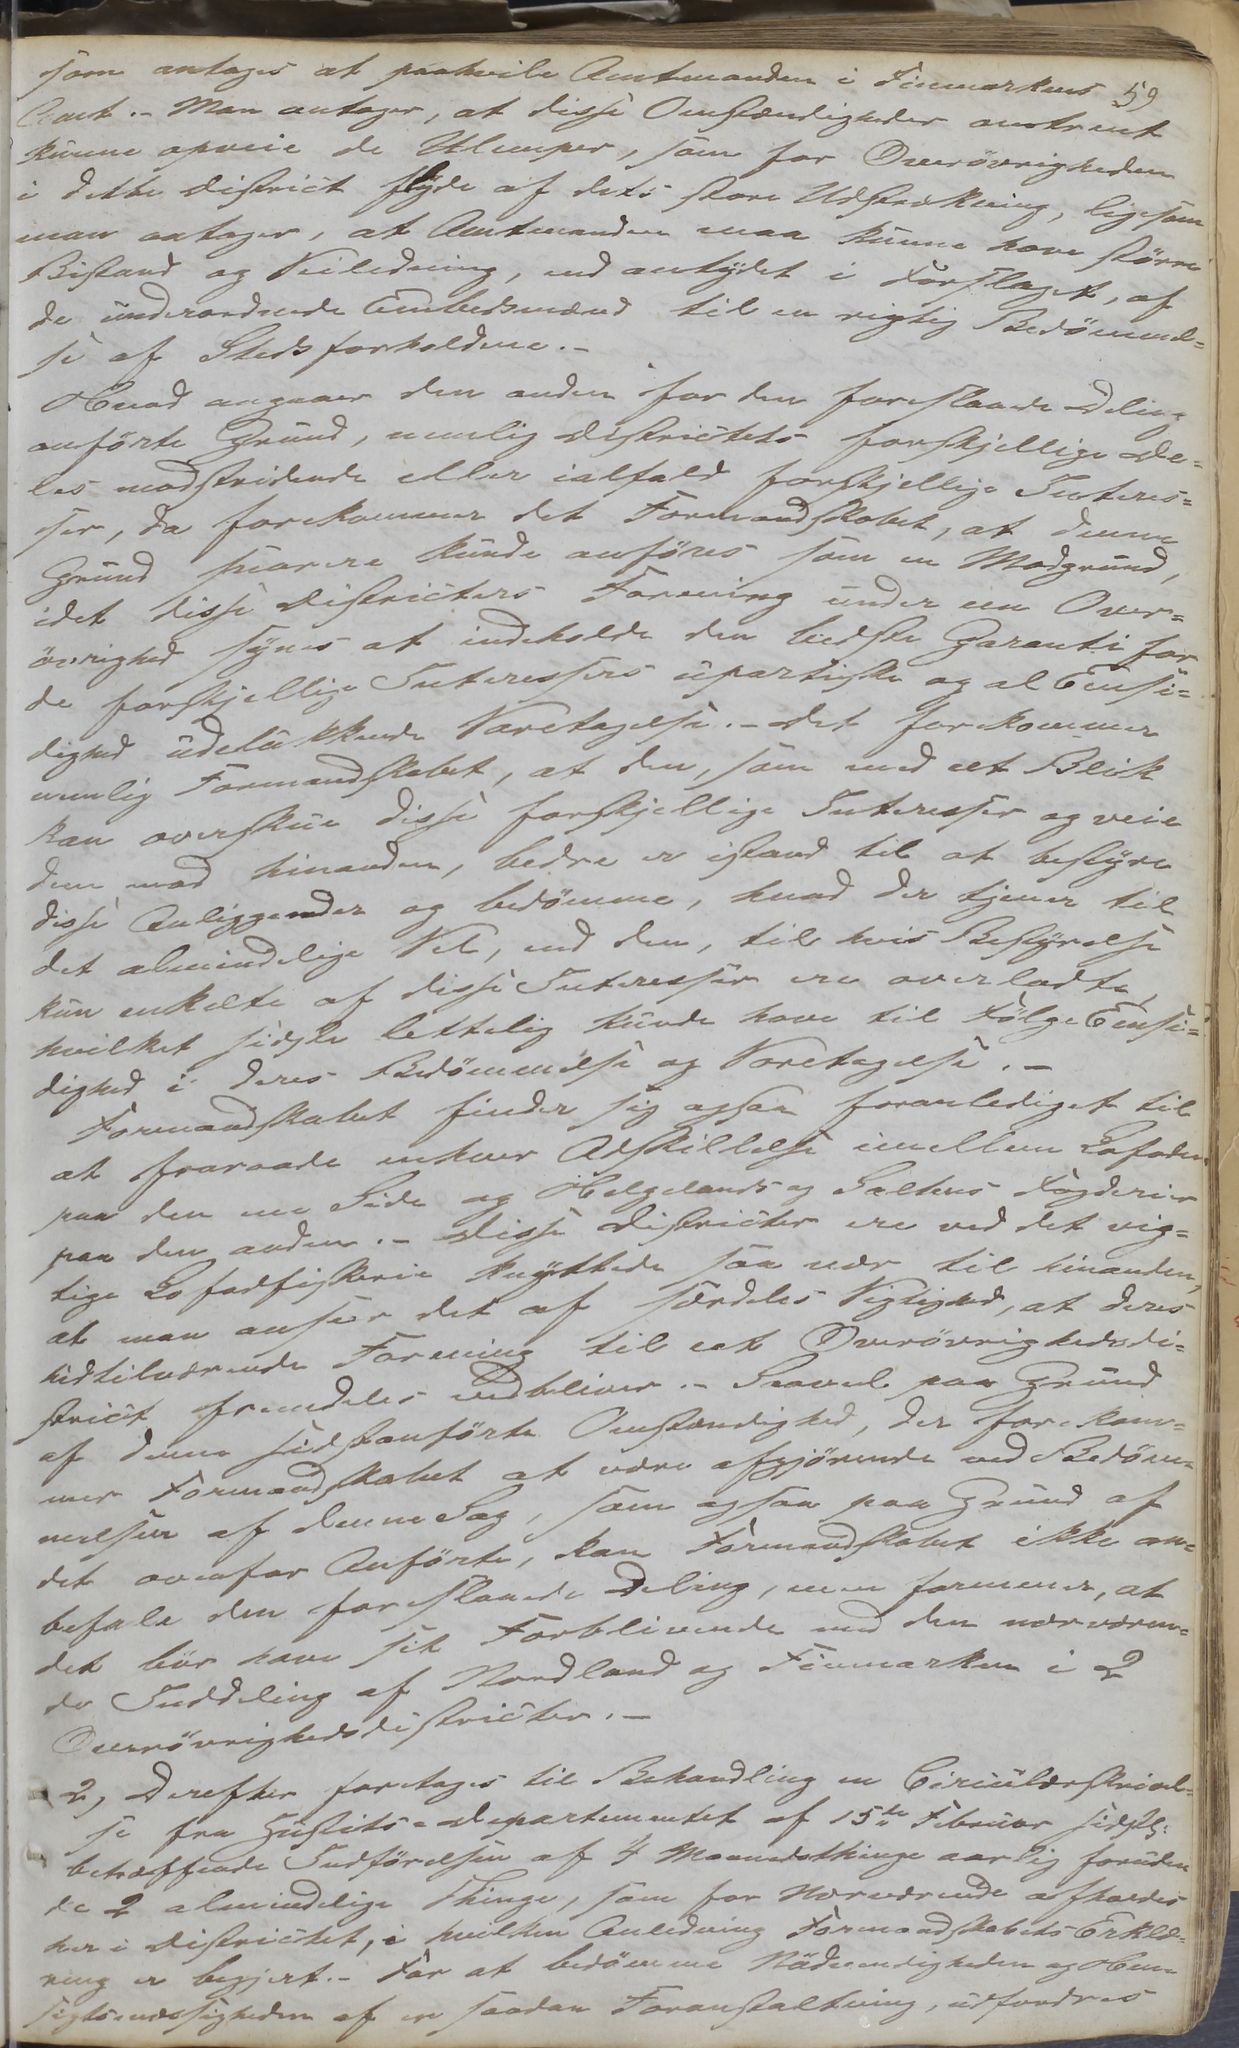 59
som antages at paahvile Amtmanden i Finmarkens
Amt. - Man antager, at disse Omstændigheder omtrent
kunne opveie de Ulemper, som for Overøvrigheden
i dette District flyde af dets store Udstrækning, ligesom
man antager, at Amtmanden maa kunne have større
Bistand og Veiledning, end antydet i Forslaget, af
de underordnede Embedsmænd til en rigtig Bedømmel-
se af Stedsforholdene. -
Hvad angaaer den anden for den foreslaaede Deling
anførte Grund, nemlig Districtets forskjellige De-
les modstridende eller ialfald forskjellige Interes-
ser, da forekommer det Formandskabet, at denne
Grund snarere kunde anføres som en Modgrund,
idet disse Districters Forening under een Over-
øvrighed synes at indeholde den bedste Garanti for
de forskjellige Interessers upartiske og al Eensi-
dighed udelukkende Varetagelse. - Det forekommer
nemlig Formandskabet, at den, som med eet Blik
kan overskue disse forskjellige Interesser og veie
dem mod hinanden, bedre er istand til at bestyre
disse Anliggender og bedømme, hvad der tjener til
det almindelige Vel, end den, til hvis Bestyrelse
kun enkelte af disse Interesser ere overladte,
hvilket sidste lettelig kunde have til Følge Eensi-
dighed i deres Bedømmelse og Varetagelse. -
Formandskabet finder sig ogsaa foranlediget til
at fraraade enhver Adskillelse imellem Lofoden
paa den ene Side og Helgelands og Saltens Fogderier
paa den anden. - Disse Districter ere ved det vig-
tige Lofodfiskerie knyttede saa nær til hinanden,
at man anseer det af særdeles Vigtighed, at deres
hidtilværende Forening til eet Overøvrighedsdi-
strict fremdeles vedbliver. - Saavel paa Grund
af denne sidstanførte Omstændighed, der forekom-
mer Formandskabet at være afgjørende ved Bedøm-
melsen af denne Sag, som ogsaa paa Grund af
det ovenfor Anførte, kan Formandskabet ikke an-
befale den foreslaaede Deling, men formener, at
det bør have sit Forblivende med den nærværen-
de Inddeling af Nordland og Finmarken i 2
Overøvrighedsdistricter. -
2, Derefter foretages til Behandling en Circulærskrivel-
se fra Justits-Departementet af 15de Februar sidstl.
betræffende Indførelsen af 4 Maanedsthinge aarlig foruden
de 2 almindelige Thinge, som for Nærværende afholdes
her i Districtet, i hvilken Anledning Formandskabets Erklæ-
ring er begjert. - For at bedømme Nødvendigheden og Hen-
sigtsmæssigheden af en saadan Foranstaltning, udfordres